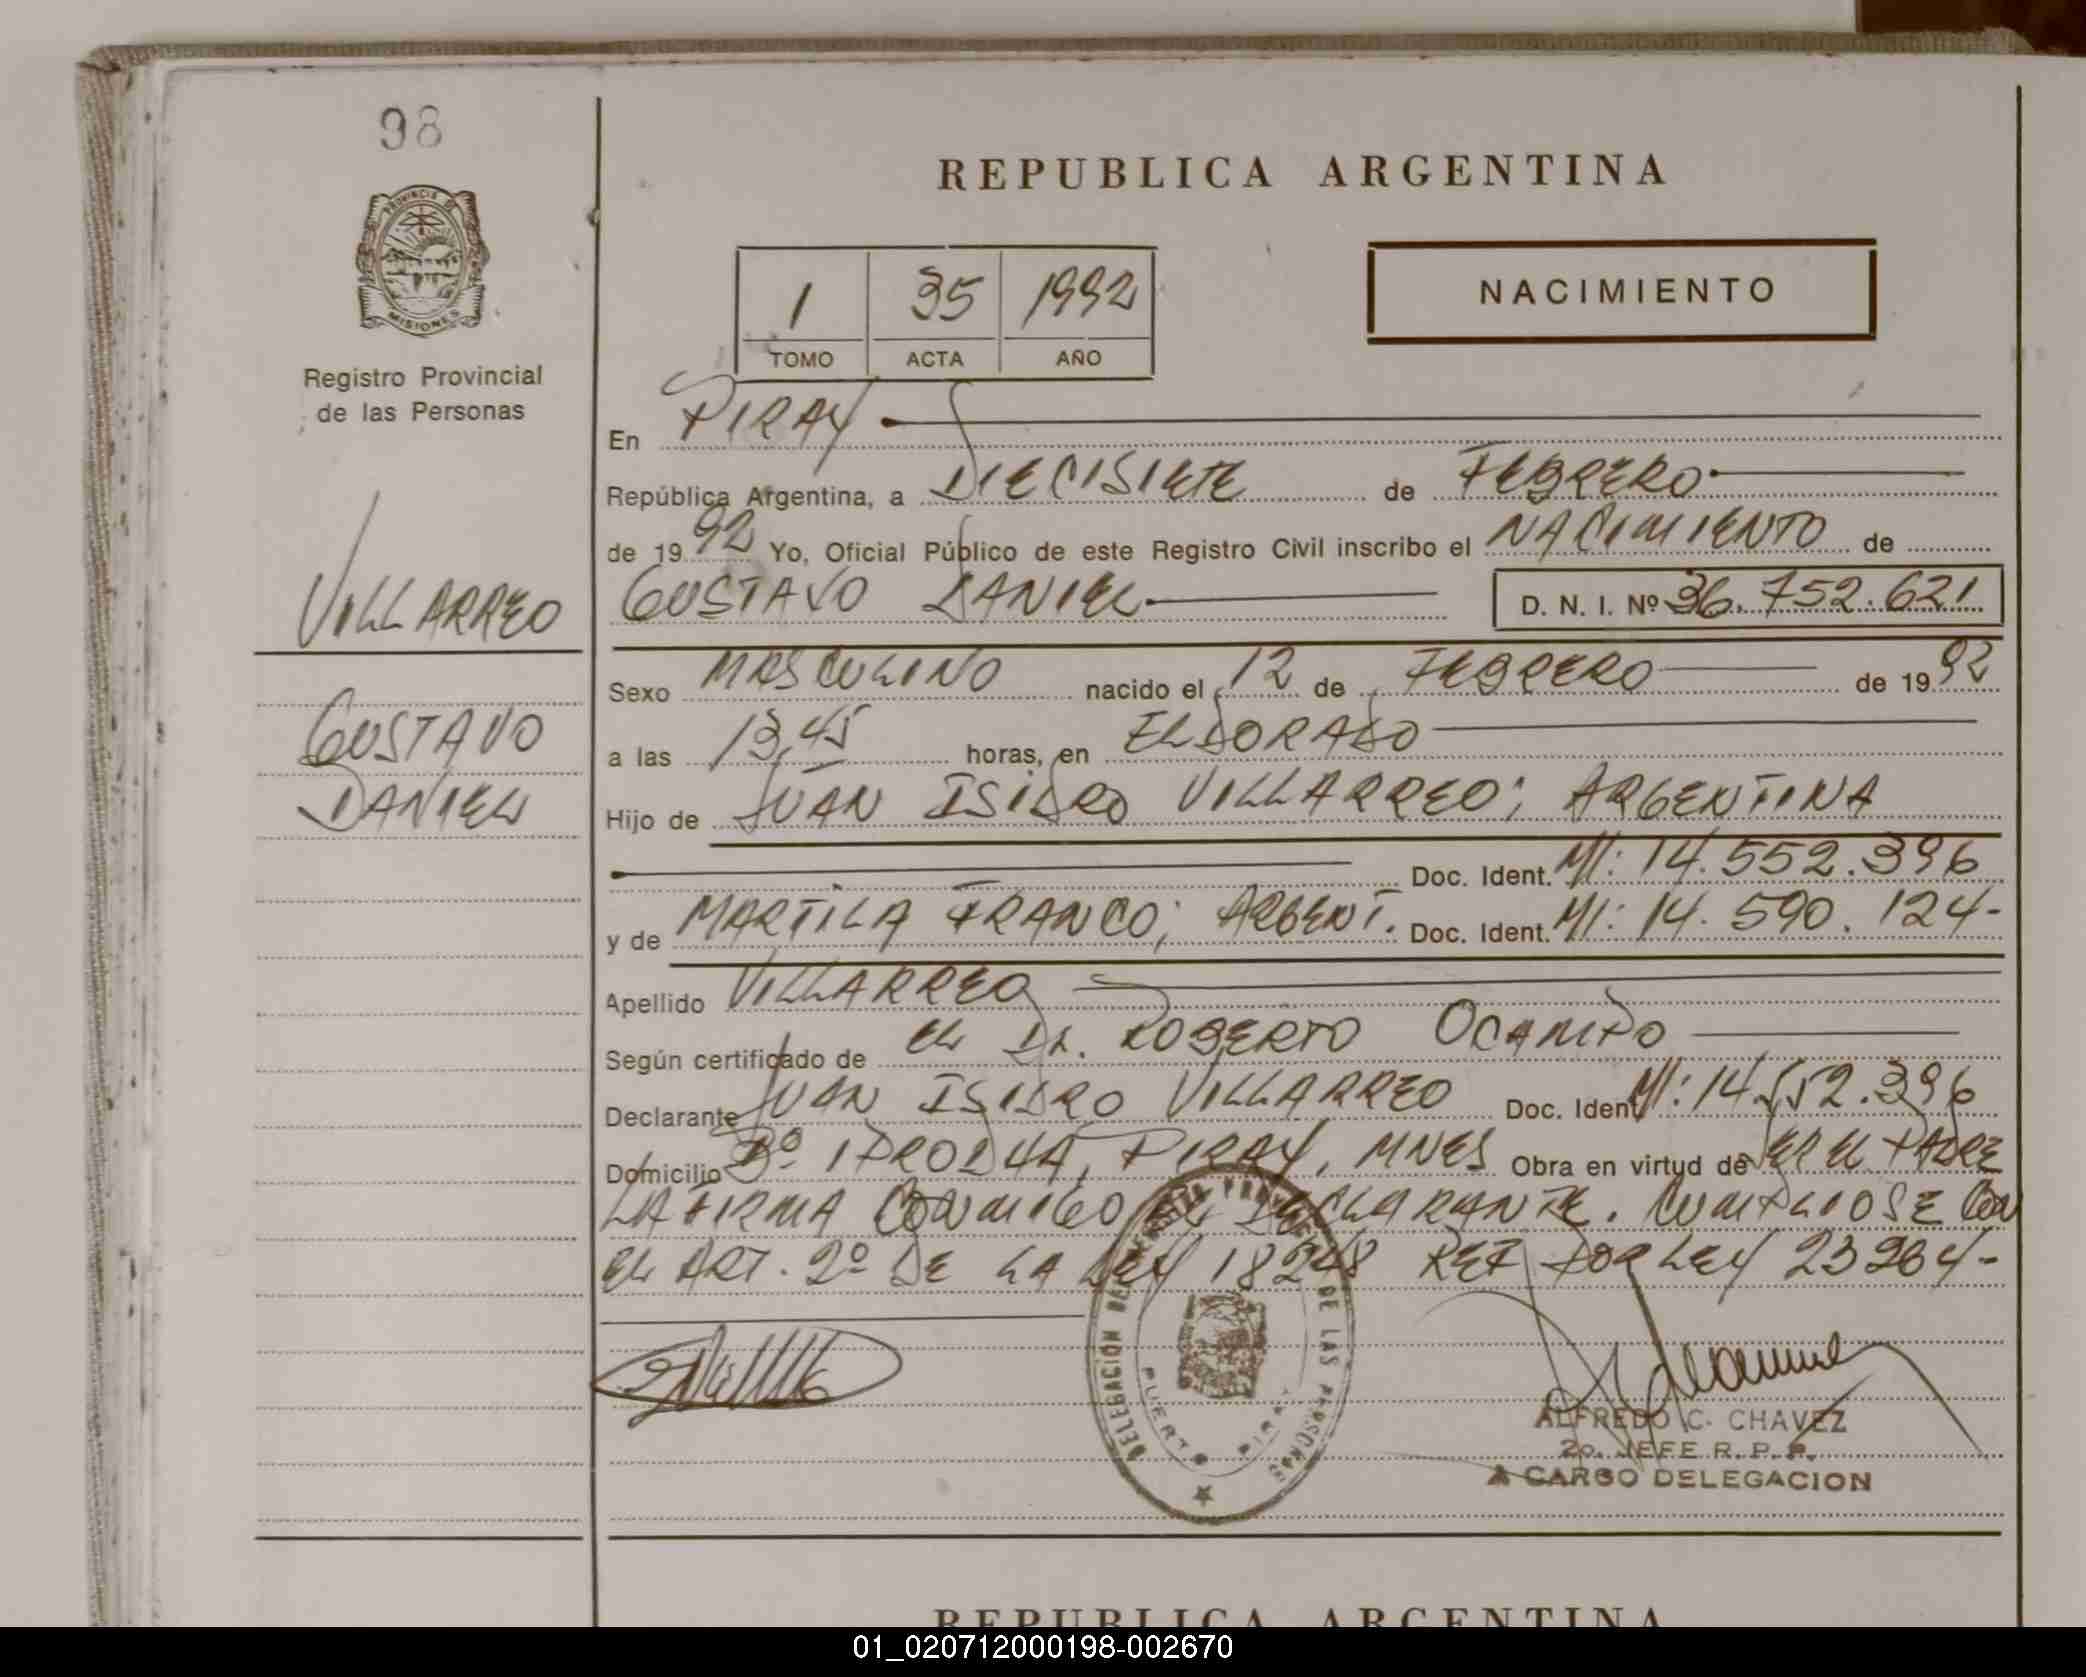 98
REPUBLICA ARGENTINA
PROVINCIA DE
MISIONES
Registro Provincial
de las Personas
1 35 1992
TOMO ACTA AÑO
NACIMIENTO
En PIRAY
República Argentina, a DIECISIETE de FEBRERO
de 1992 Yo, Oficial Público de este Registro Civil inscribo el NACIMIENTO de
GUSTAVO DANIEL D. N. I. Nº 36.752.621
VILLARREO
GUSTAVO
DANIEL
Sexo MASCULINO nacido el 12 de FEBRERO de 1992
a las 13,45 horas, en ELDORADO
Hijo de JUAN ISIDRO VILLARREO; ARGENTINA
Doc. Ident. MI: 14.552.396
y de MARTILA FRANCO; ARGENT. Doc. Ident. MI: 14.590.124-
Apellido VILLARREO
Según certificado de EL DR. ROBERTO OCAMPO
Declarante JUAN ISIDRO VILLARREO Doc. Ident MI: 14.552.396
Domicilio Bº IPRODHA, PIRAY, MNES Obra en virtud de SER EL PADRE
LA FIRMA CONMIGO EL DECLARANTE. CUMPLIOSE CON
EL ART. 2º DE LA LEY 18248 REF POR LEY 23264-
DELEGACION DE LAS PERSONAS
PUERTO PIRAY
ALFREDO C. CHAVEZ
2o. JEFE R. P. P.
A CARGO DELEGACION
REPUBLICA ARGENTINA
01_020712000198-002670